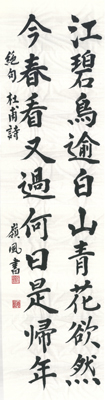 江碧鳥逾白山青花欲然
今春看又過何日是歸年
絕句 杜甫詩
嶺風書